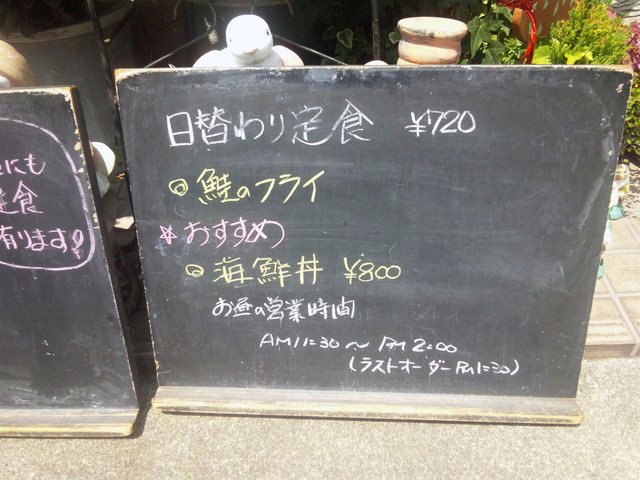 にも
定食
有ります!
日替わり定食 ¥720
◎ 鮭のフライ
☆ おすすめ
◎ 海鮮丼 ¥800
お昼の営業時間
AM11:30 ～ PM 2:00
(ラストオーダー PM1:30)